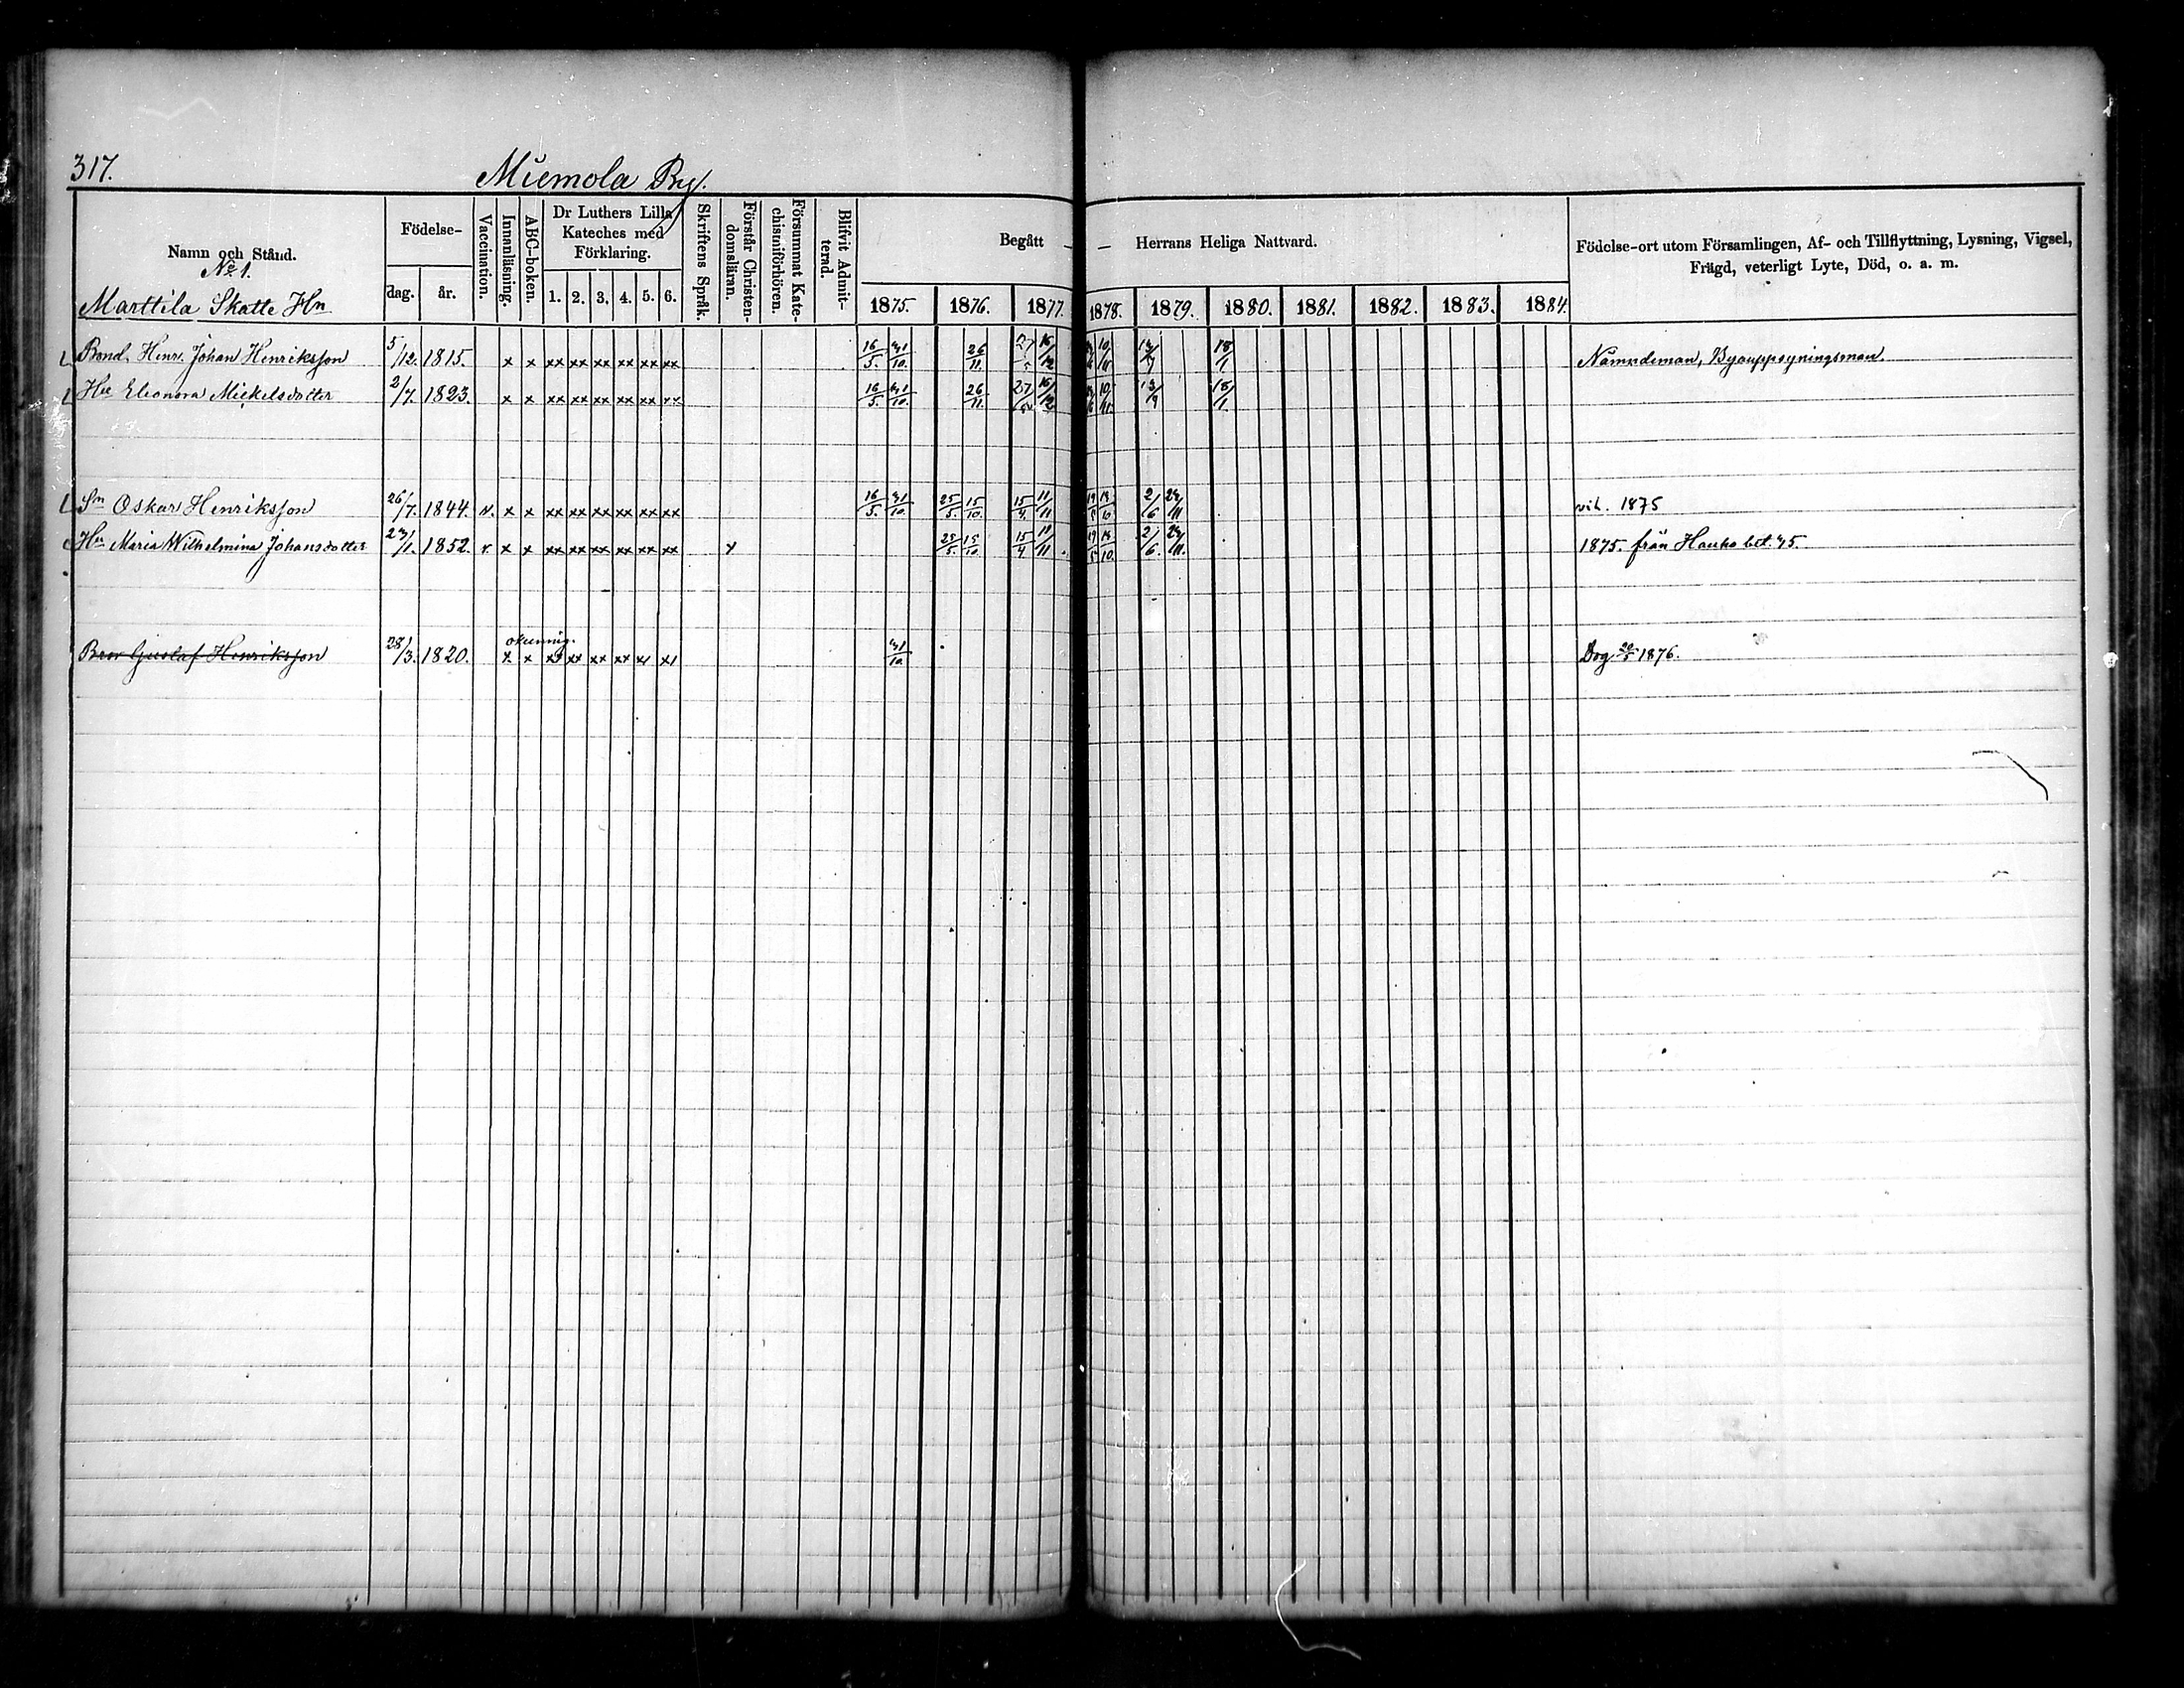 317.
Miemola By.
Namn och Stånd.
No 1.
Marttila Skatte Hn
Födelse-
dag. år.
Vaccination.
Innanläsning.
ABC-boken.
Dr Luthers Lilla Kateches med Förklaring.
1. 2. 3. 4. 5. 6.
Skriftens Språk.
Förstår Christen-domsläran.
Försummat Kate-chismiförhören.
Blifvit Admit-terad.
Begått — — Herrans Heliga Nattvard.
1875. 1876. 1877. 1878. 1879. 1880. 1881. 1882. 1883. 1884.
Födelse-ort utom Församlingen, Af- och Tillflyttning, Lysning, Vigsel,
Frägd, veterligt Lyte, Död, o. a. m.
Bond. Henr. Johan Henriksson 5/12. 1815. x x xx xx xx xx xx xx 16/5. 31/10. 26/11. 18/1 Nämndeman, Byauppsyningsman
Hu Eleonora Mickelsdotter 2/7. 1823. x x xx xx xx xx xx xx 16/5. 31/10. 26/11. 18/1
Sn Oskar Henriksson 26/7. 1844. v. x x xx xx xx xx xx xx 16/5. 31/10. 25/5. 15/10. 15/4. 11/11 2/6 vih. 1875
Hu Maria Wilhelmina Johansdotter 1852. v. x x xx xx xx xx xx xx x 25/5. 15/10. 15/4 11/11. 2/6 1875. från Hauho bet. 45.
okunnig.
Bror Gustaf Henriksson 28/3. 1820. x x xx xx xx xx 31/10. Dog 1876.